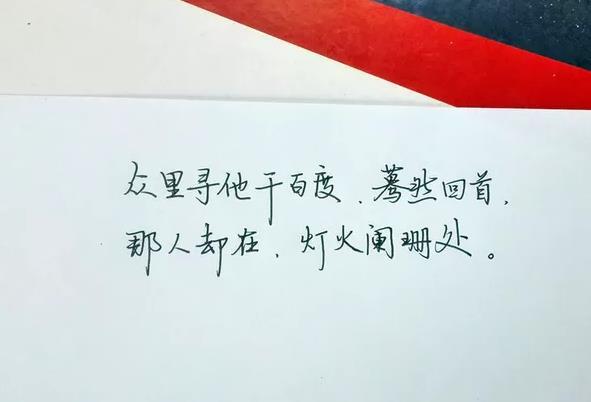 众里寻他千百度、蓦然回首,
那人却在、灯火阑珊处。